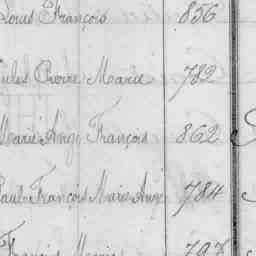 Louis François 856
Jules Pierre Marie 782
Marie Ange François 862
Paul François Marie Ange 784
François Marie 797